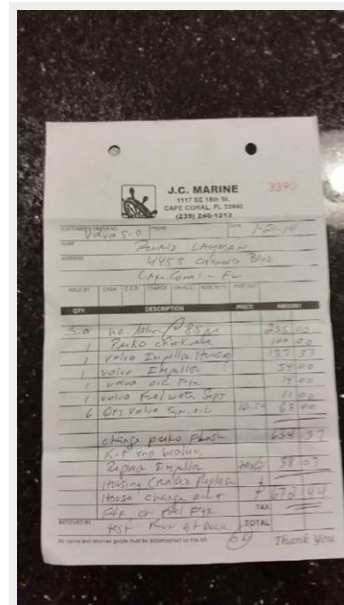 J.C. MARINE
3390
1117 SE 16th St.
CAPE CORAL, FL 33990
(239) 240-1213
CUSTOMER'S ORDER NO. Volvo 5.0 PHONE DATE 1-21-14
NAME Ronald
ADDRESS 4453 Blvd
Cape Coral - FL
SOLD BY CASH C.O.D. CHARGE ON ACCT. MDSE. RETD. PAID OUT
QTY. DESCRIPTION PRICE AMOUNT
3.0 hr labor 85 255 00
1 Perko 100 00
1 Volvo Impeller Housing 137 37
1 Volvo Impeller 54 00
1 Volvo 14 00
1 Volvo Fuel Water Sept 11 00
6 Qts Volvo Syn. oil 10.50 63 00
634 37
change perko Flush
Kit was broken
Impeller 38 07
Housing
House change oil & 672 44
Ftr or fuel Ftr TAX
RECEIVED BY test Run at Dock TOTAL
All claims and returned goods must be accompanied by this bill.
Thank You